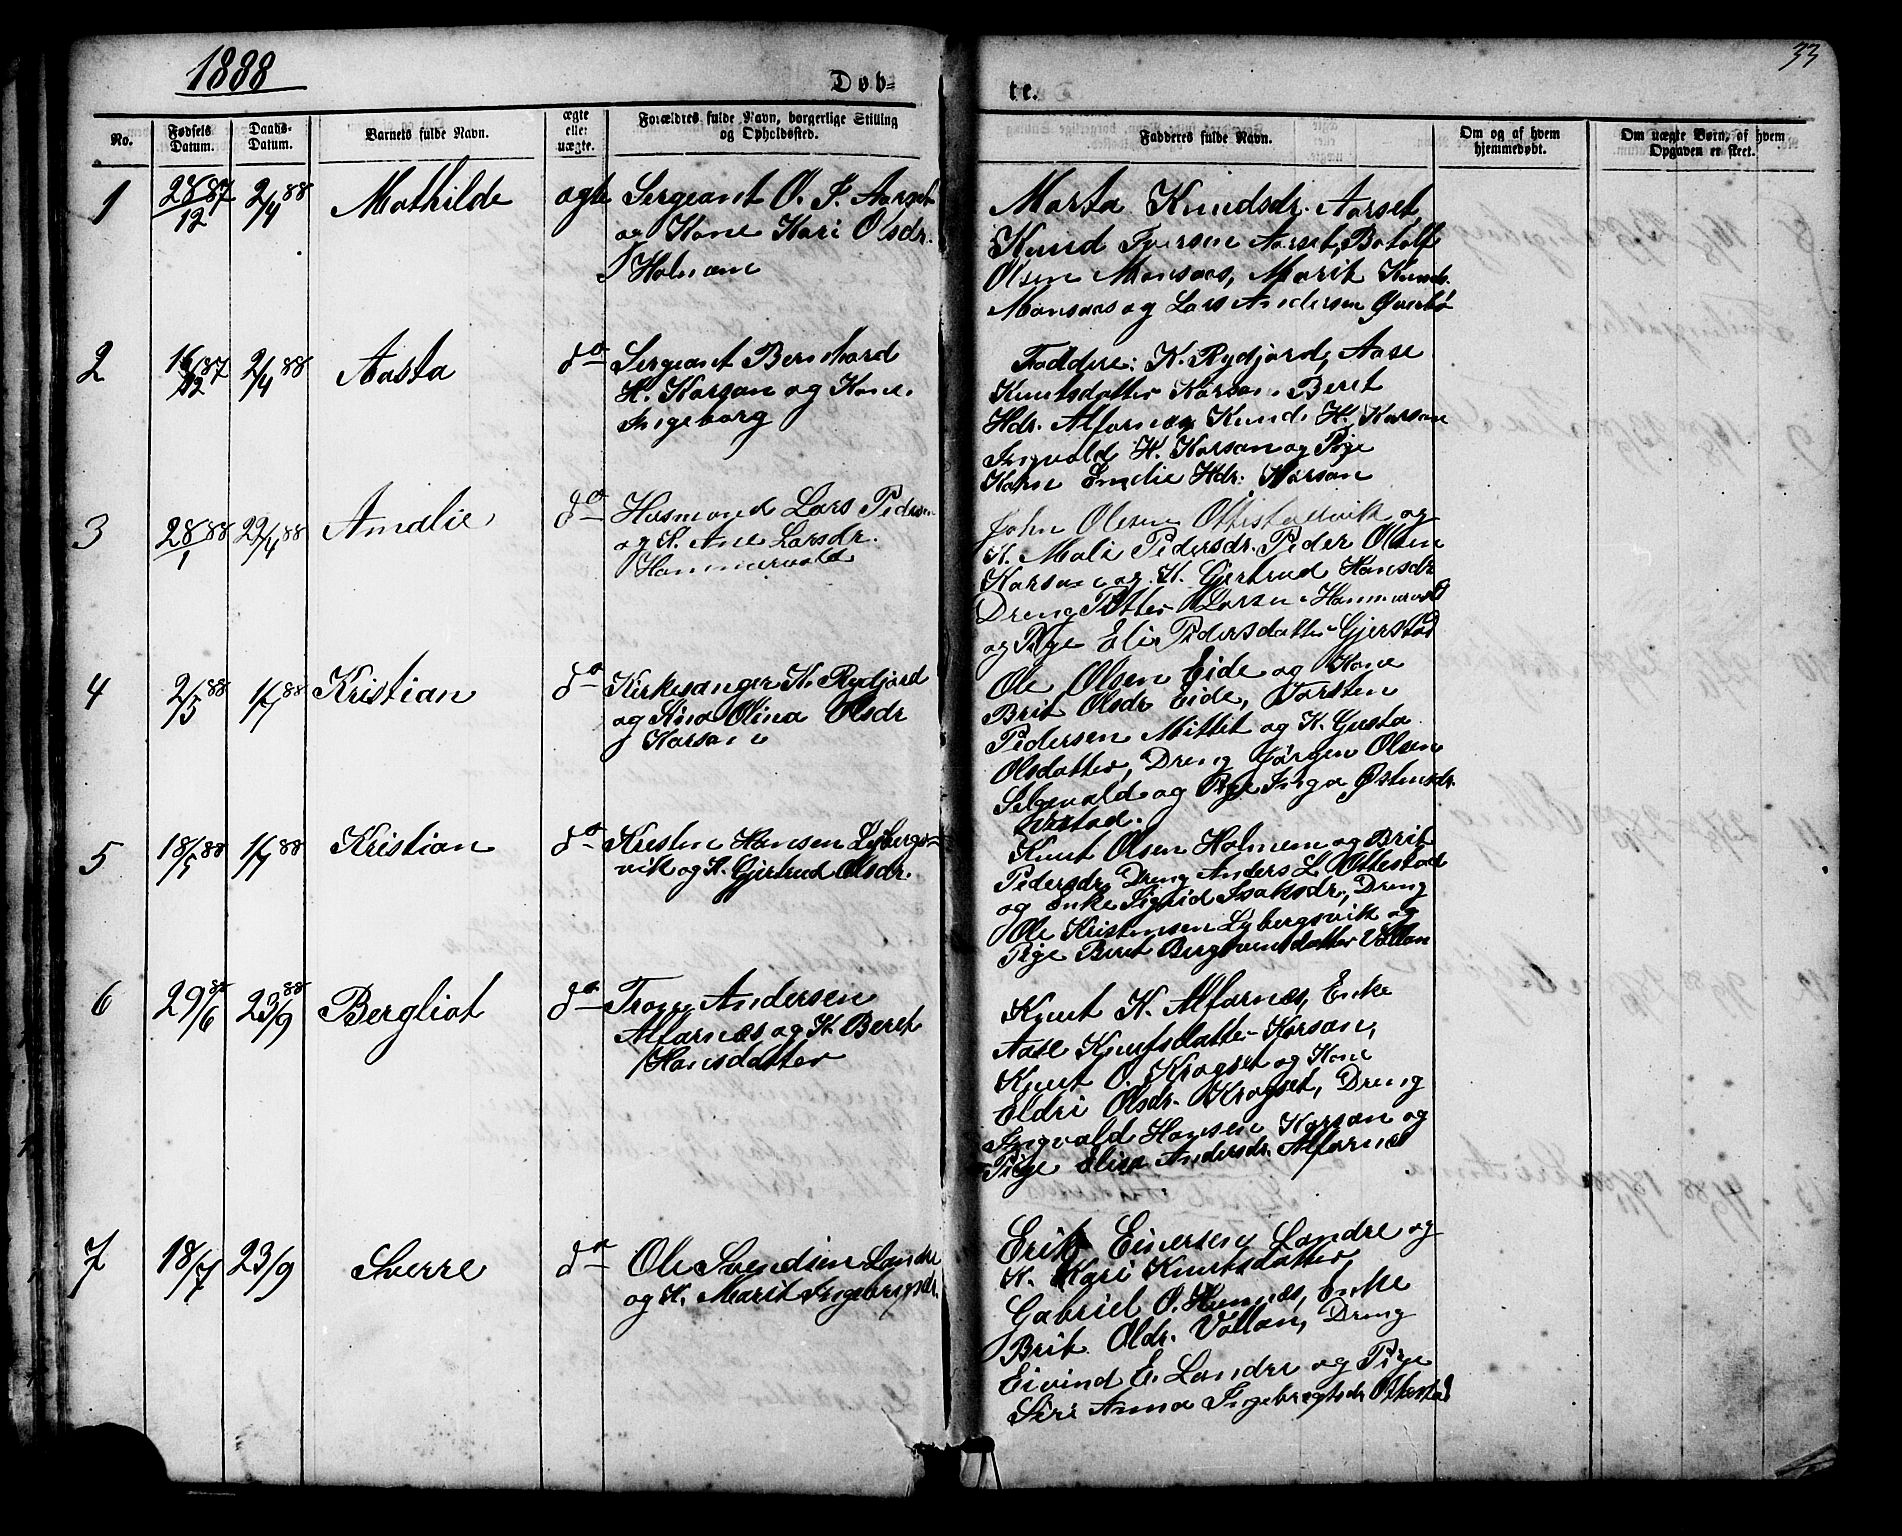 1888
Døb-
te.
33
No.
Fødsels Datum.
Daabs-Datum.
Barnets fulde Navn.
ægte eller uægte.
Forældres fulde Navn, borgerlige Stilling og Opholdssted.
Fadderes fulde Navn.
Om og af hvem hjemmedøbt.
Om uægte Børn, af hvem Opgaven er skeet.
1
28/12 87
2/4 88
Mathilde
ægte
Sergeant O. I. Aarset
og Kone Kari Olsdr.
Holmem
Marta Knudsdr. Aarset,
Knud Iversen Aarset, Botolf
Olsen Monsaas, Marit Knuds.
Monsaas og Lars Andersen Øverbø
2
16/12 87
2/4 88
Aasta
do
Sergeant Bernhard
H. Korsan og Kone
Ingeborg
Faddere: K. Rydjord, Aase
Knutsdatter Korsan, Beret
Hdr. Alfarnæs, Knud H. Korsan
Ingvald H. Korsan og Pige
Karn Emelie Hdr. Korsan
3
28/1 88
22/4 88
Amalie
do
Husmand Lars Peders
og K. Ane Larsdr.
Hammervold
John Olesen Ottestadvik og
K. Mali Pedersdr. Peder Olsen
Korsan og K. Gjertrud Hansdr
Dreng Petter Larsen Hammervold
og Pige Eli Pedersdatter Gjerstad
4
2/5 88
1/7 88
Kristian
do
Kirkesanger K. Rydjord
og Kona Olina Olsdr
Korsan
Ole Olsen Eide og Kone
Brit Olsdr Eide, Torsten
Pedersen Mittet og K. Gusta
Olsdatter, Dreng Jørgen Olsen
Selgevold og Pige Inga Østensdr.
5
18/5 88
1/7 88
Kristian
do
Kresten Hansen Lybergs-
vik og K. Gjertrud Olsdr.
Knut Olsen Holmem og Brit
Pedersdr, Dreng Anders L. Ottestad
og Enke Sigrid Isaksdr, Dreng
Ole Kristensen Lybergsvik og
Pige Beret Bergsvendsdatter Vollan
6
29/6 88
23/9 88
Bergliot
do
Trond Andersen
Alfarnæs og K. Beret
Hansdatter
Knut K. Alfarnæs, Enke
Aase Knutsdatter Korsan,
Knut O. Kragset og Kone
Eldri Olsdr. Kragset, Dreng
Ingvald Hansen Korsan og
Pige Elisa Andersdr. Alfarnæs
7
18/7
23/9
Sverre
do
Ole Svendsen Landre
og K. Marit Ingebrigtsdr.
Erik Einersen Landre og
K. Kari Knutsdatter
Gabriel O. Hunnæs, Enke
Brit Oldr. Vollan, Dreng
Eivind E. Landre og Pige
Siri Anna Ingebregtsdr. Ottestad